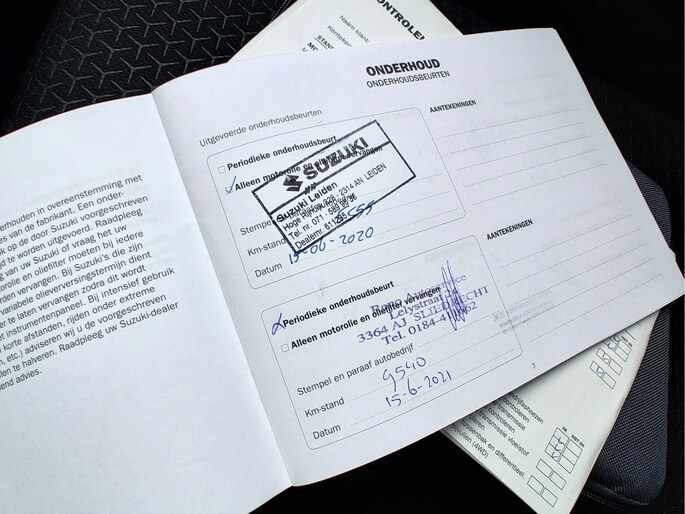 CONTROLE
Naam klant:
Kenteken
ONDERHOUD
ONDERHOUDSBEURTEN
Uitgevoerde onderhoudsbeurten
AANTEKENINGEN
Periodieke onderhoudsbeurt
Alleen motorolie en oliefilter vervangen
SUZUKI
Suzuki Leiden
2314 AN LEIDEN
Tel. nr. 071
Dealernr.
Km-stand
Datum
2020
AANTEKENINGEN
Periodieke onderhoudsbeurt
Alleen motorolie en oliefilter vervangen
Lelystraat
3364 AJ SLIEDRECHT
Tel. 0184-4
Stempel en paraaf autobedrijf
Km-stand 9540
Datum 15-6-2021
7
erhouden in overeenstemming met
es van de fabrikant. Een onder-
k op de door Suzuki voorgeschreven
d te worden uitgevoerd. Raadpleeg
ng van uw Suzuki of vraag het uw
orolie en oliefilter moeten bij iedere
rden vervangen. Bij Suzuki's die zijn
variabele olieverversingstermijn dient
er te laten vervangen zodra dit wordt
et instrumentenpaneel. Bij intensief gebruik
korte afstanden, rijden onder extreme
, etc.) adviseren wij u de voorgeschreven
len te halveren. Raadpleeg uw Suzuki-dealer
end advies.
controleren
transmissie vloeistof
tussenbak en differentieel
(4WD)